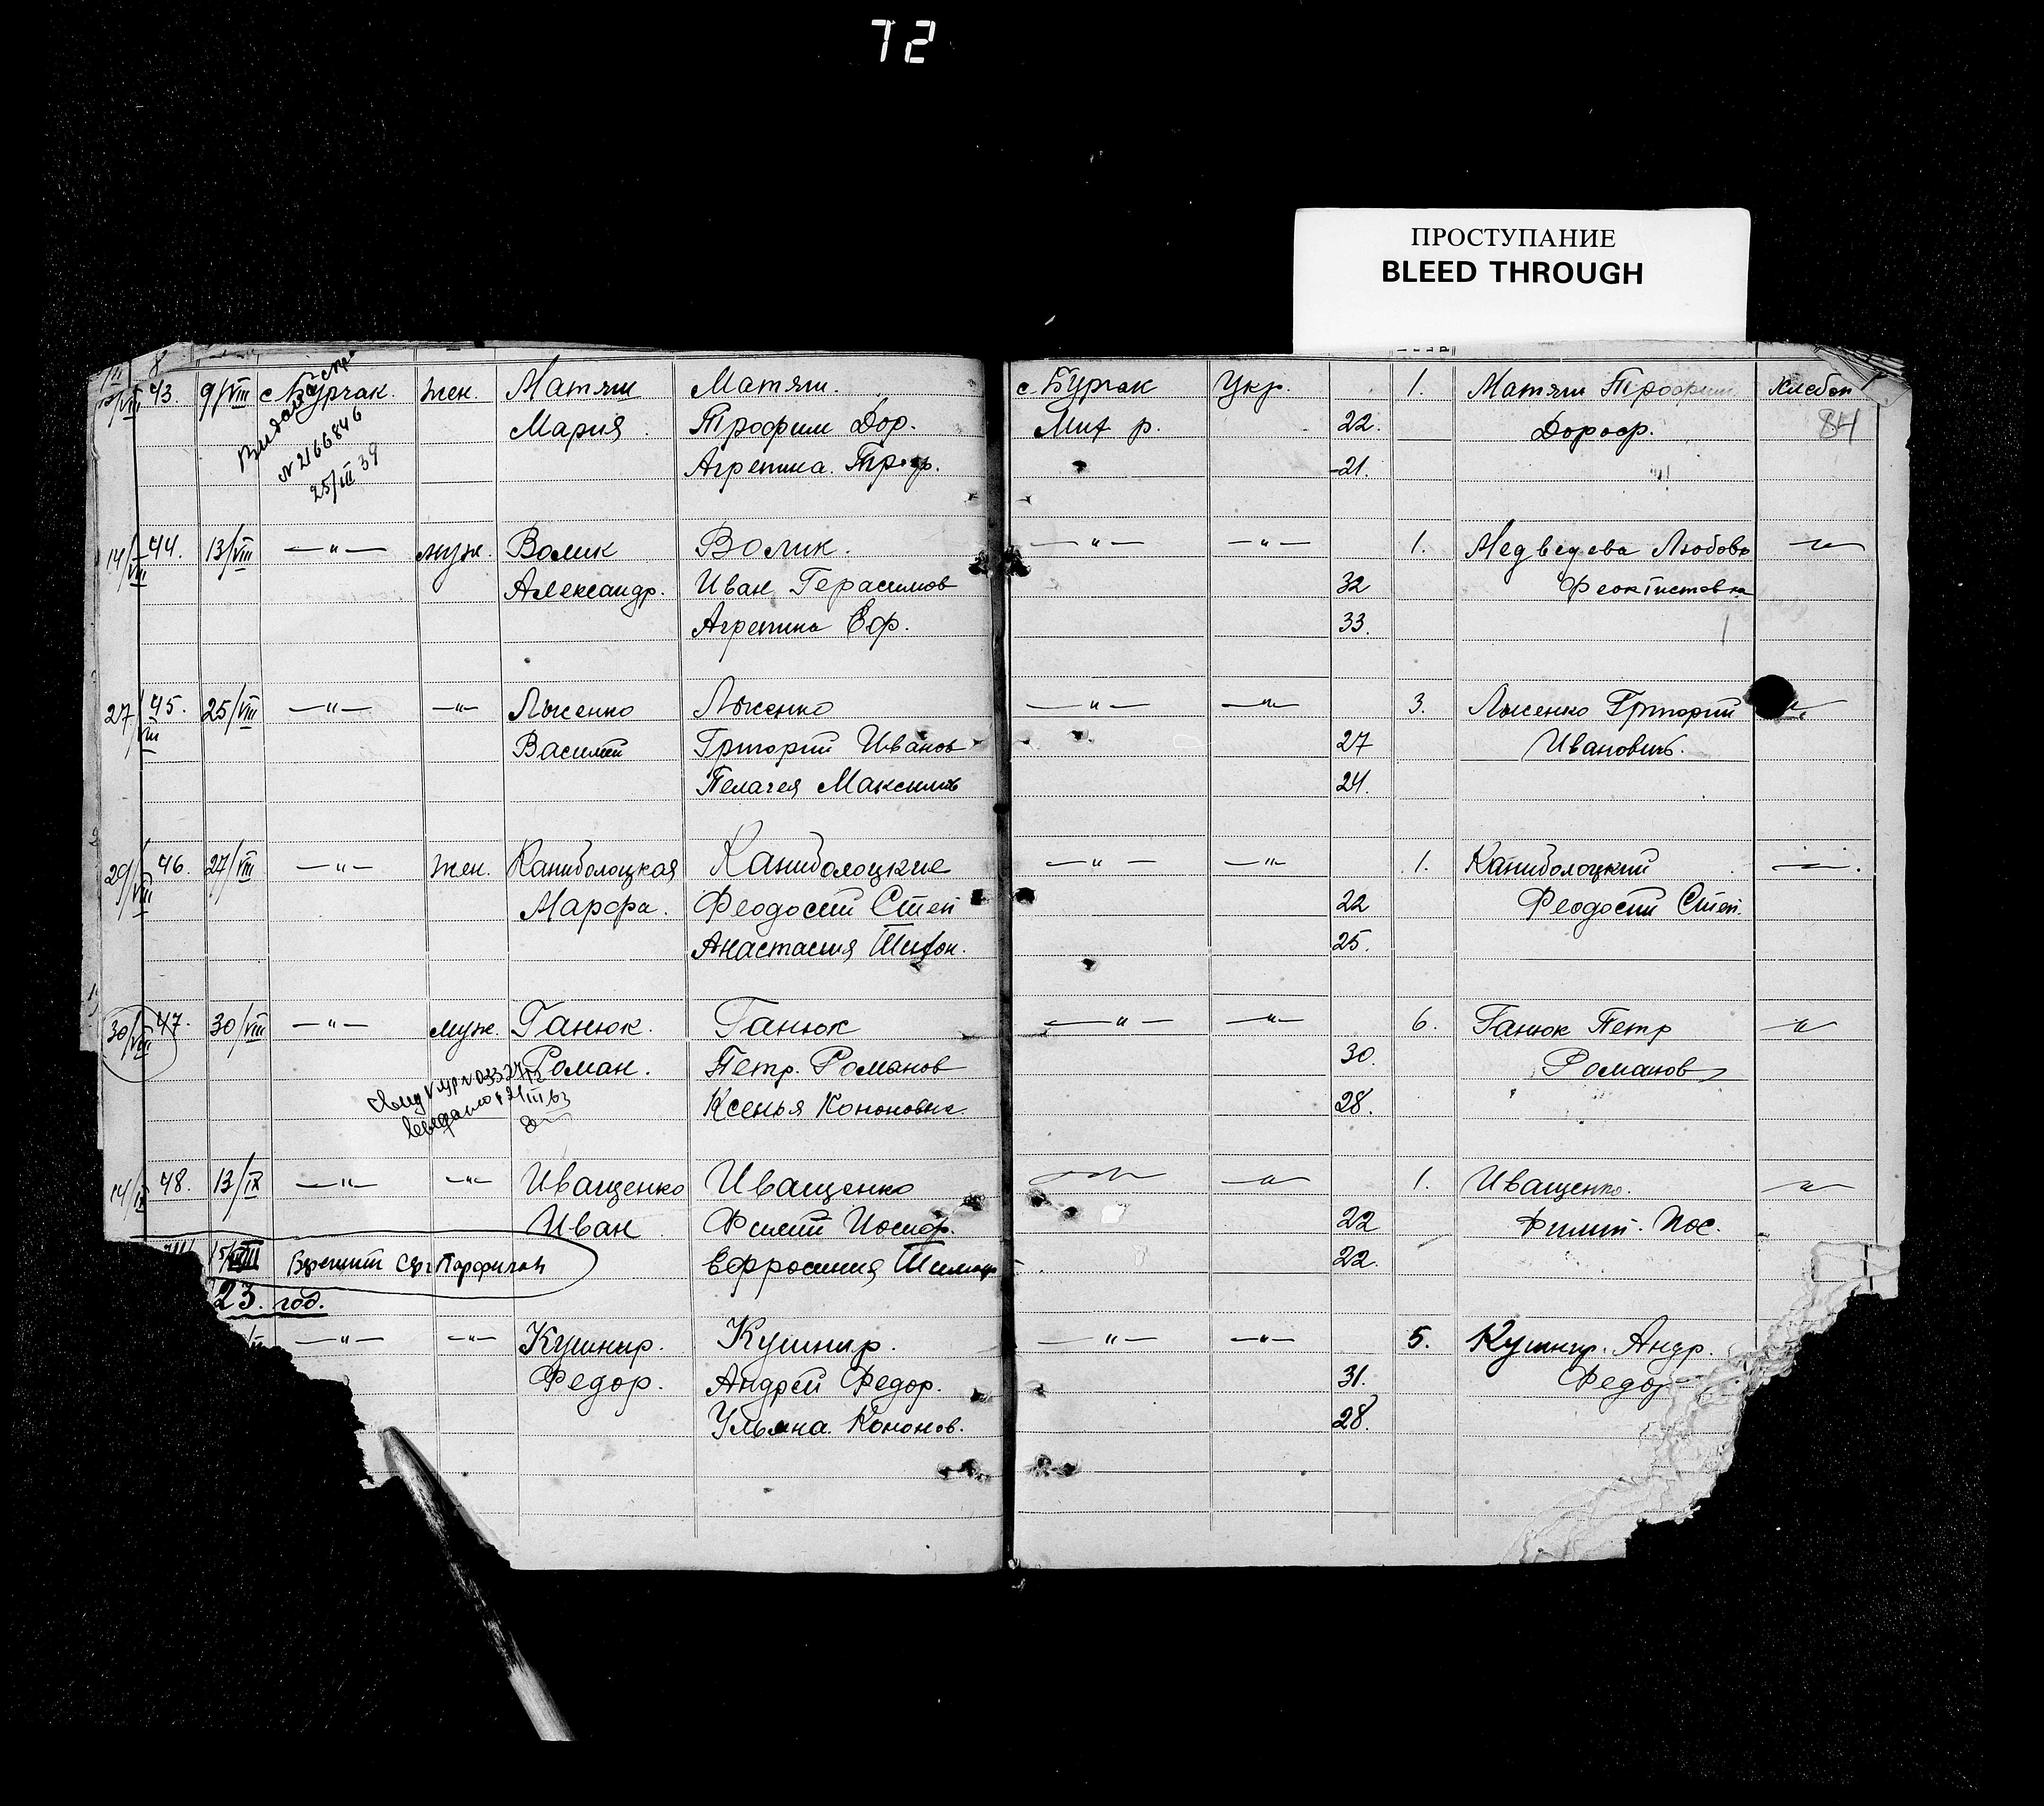 72
ПРОСТУПАНИЕ
BLEED THROUGH
84
8
43. 9/VIII с. Бурчак. жен. Матяш Матяш. с. Бурчак Укр. 1. Матяш Трофим хлебоп
Мария. Трофим Дор. Мих р. 22. Дороф.
Агрепина. 21.
№ 2166846
25/III 39
14/VIII 44. 13/VIII —"— муж. Волик Волик. —"— —"— 1. Медведева Любовь —"—
Александр. Иван Герасимов 32 Феоктистовна
Агрепина Еф. 33.
27/VIII 45. 25/VIII —"— —"— Лысенко Лысенко —"— —"— 3. Лысенко Григорий —"—
Василий Григорий Иванов 27 Иванович.
Пелагея Максимов 24.
29/VIII 46. 27/VIII —"— жен. Каниболоцкая Каниболоцкие —"— —"— 1. Каниболоцкий —"—
Марфа. Феодосий Степ 22 Феодосий Степ.
Анастасия Тихон. 25.
30/VIII 47. 30/VIII —"— муж. Ганюк. Ганюк —"— —"— 6. Ганюк Петр —"—
Роман. Петр. Романов 30. Романов
Ксенья Кононовна 28.
14/IX 48. 13/IX —"— —"— Иващенко Иващенко —"— —"— 1. Иващенко. —"—
Иван Филип Иосиф. 22 Филип. Иос.
Ефросиния 22.
23. год.
—"— —"— Кушнир. Кушнир. —"— —"— 5. Кушнир. Андр.
Федор. Андрей Федор. 31. Федор
Ульяна. Кононов. 28.